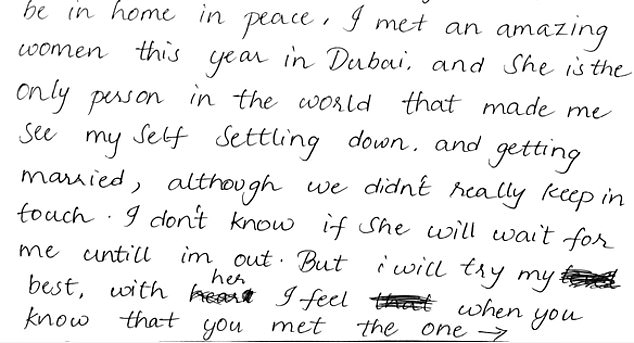 be in home in peace, I met an amazing
women this year in Dubai. and She is the
only person in the world that made me
See my Self Settling down. and getting
married, although we didn't really Keep in
touch. I don't know if She will wait for
me untill im out. But i will try my
best, with her I feel when you
Know that you met the one →